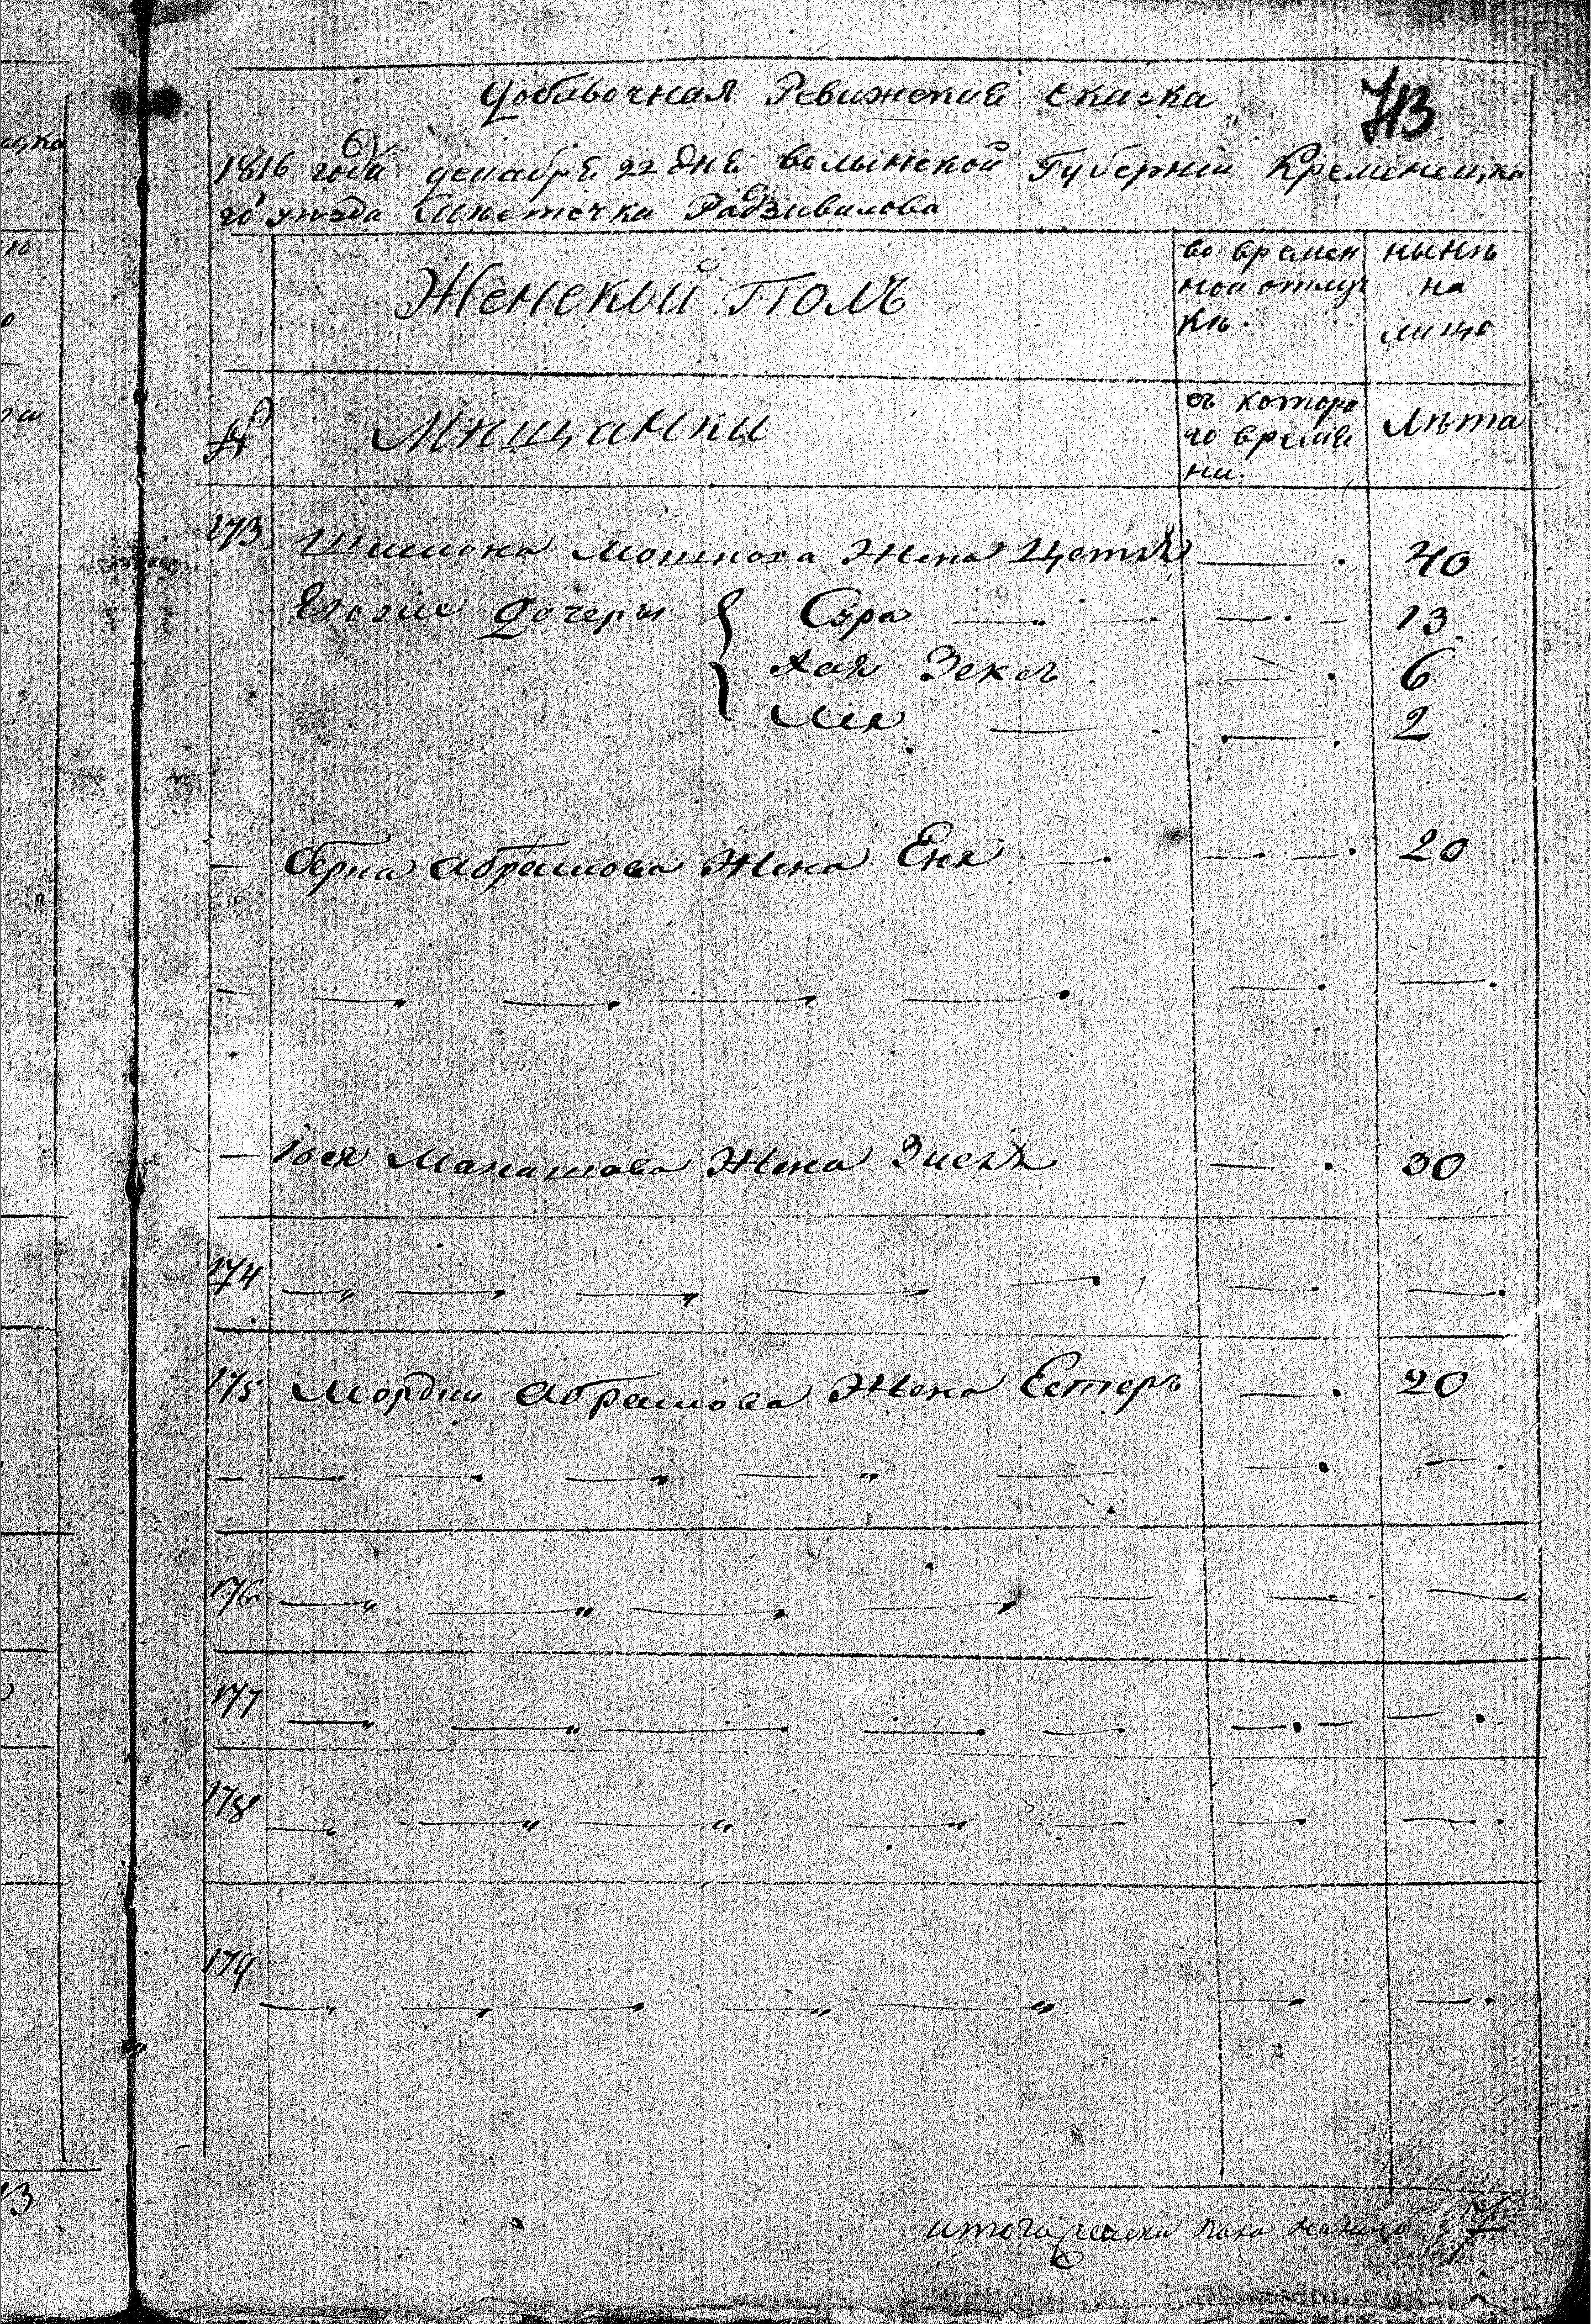 Добавочная Ревижская сказка
713
1816 года декабря 22 дня волынской Губерніи Кременецка
го уезда Мѣсточка Радзивилова
Женский Полъ
во времен
ной отлуч
кѣ.
нынѣ
на
лицо
№
Мищанки
съ которо
го време
ни.
лѣта
173 Шимона Мошкова Жена Цетля 40
Егоже дочеры Сура 13
Хая Зекль 6
Лея 2
Абрамова Жена Еня 20
Іося Манашова Жена Зисля 30
174
175 Мордки Абрамова Жена Естеръ 20
176
177
178
179
итого женска пола налицо 7
ецка
13